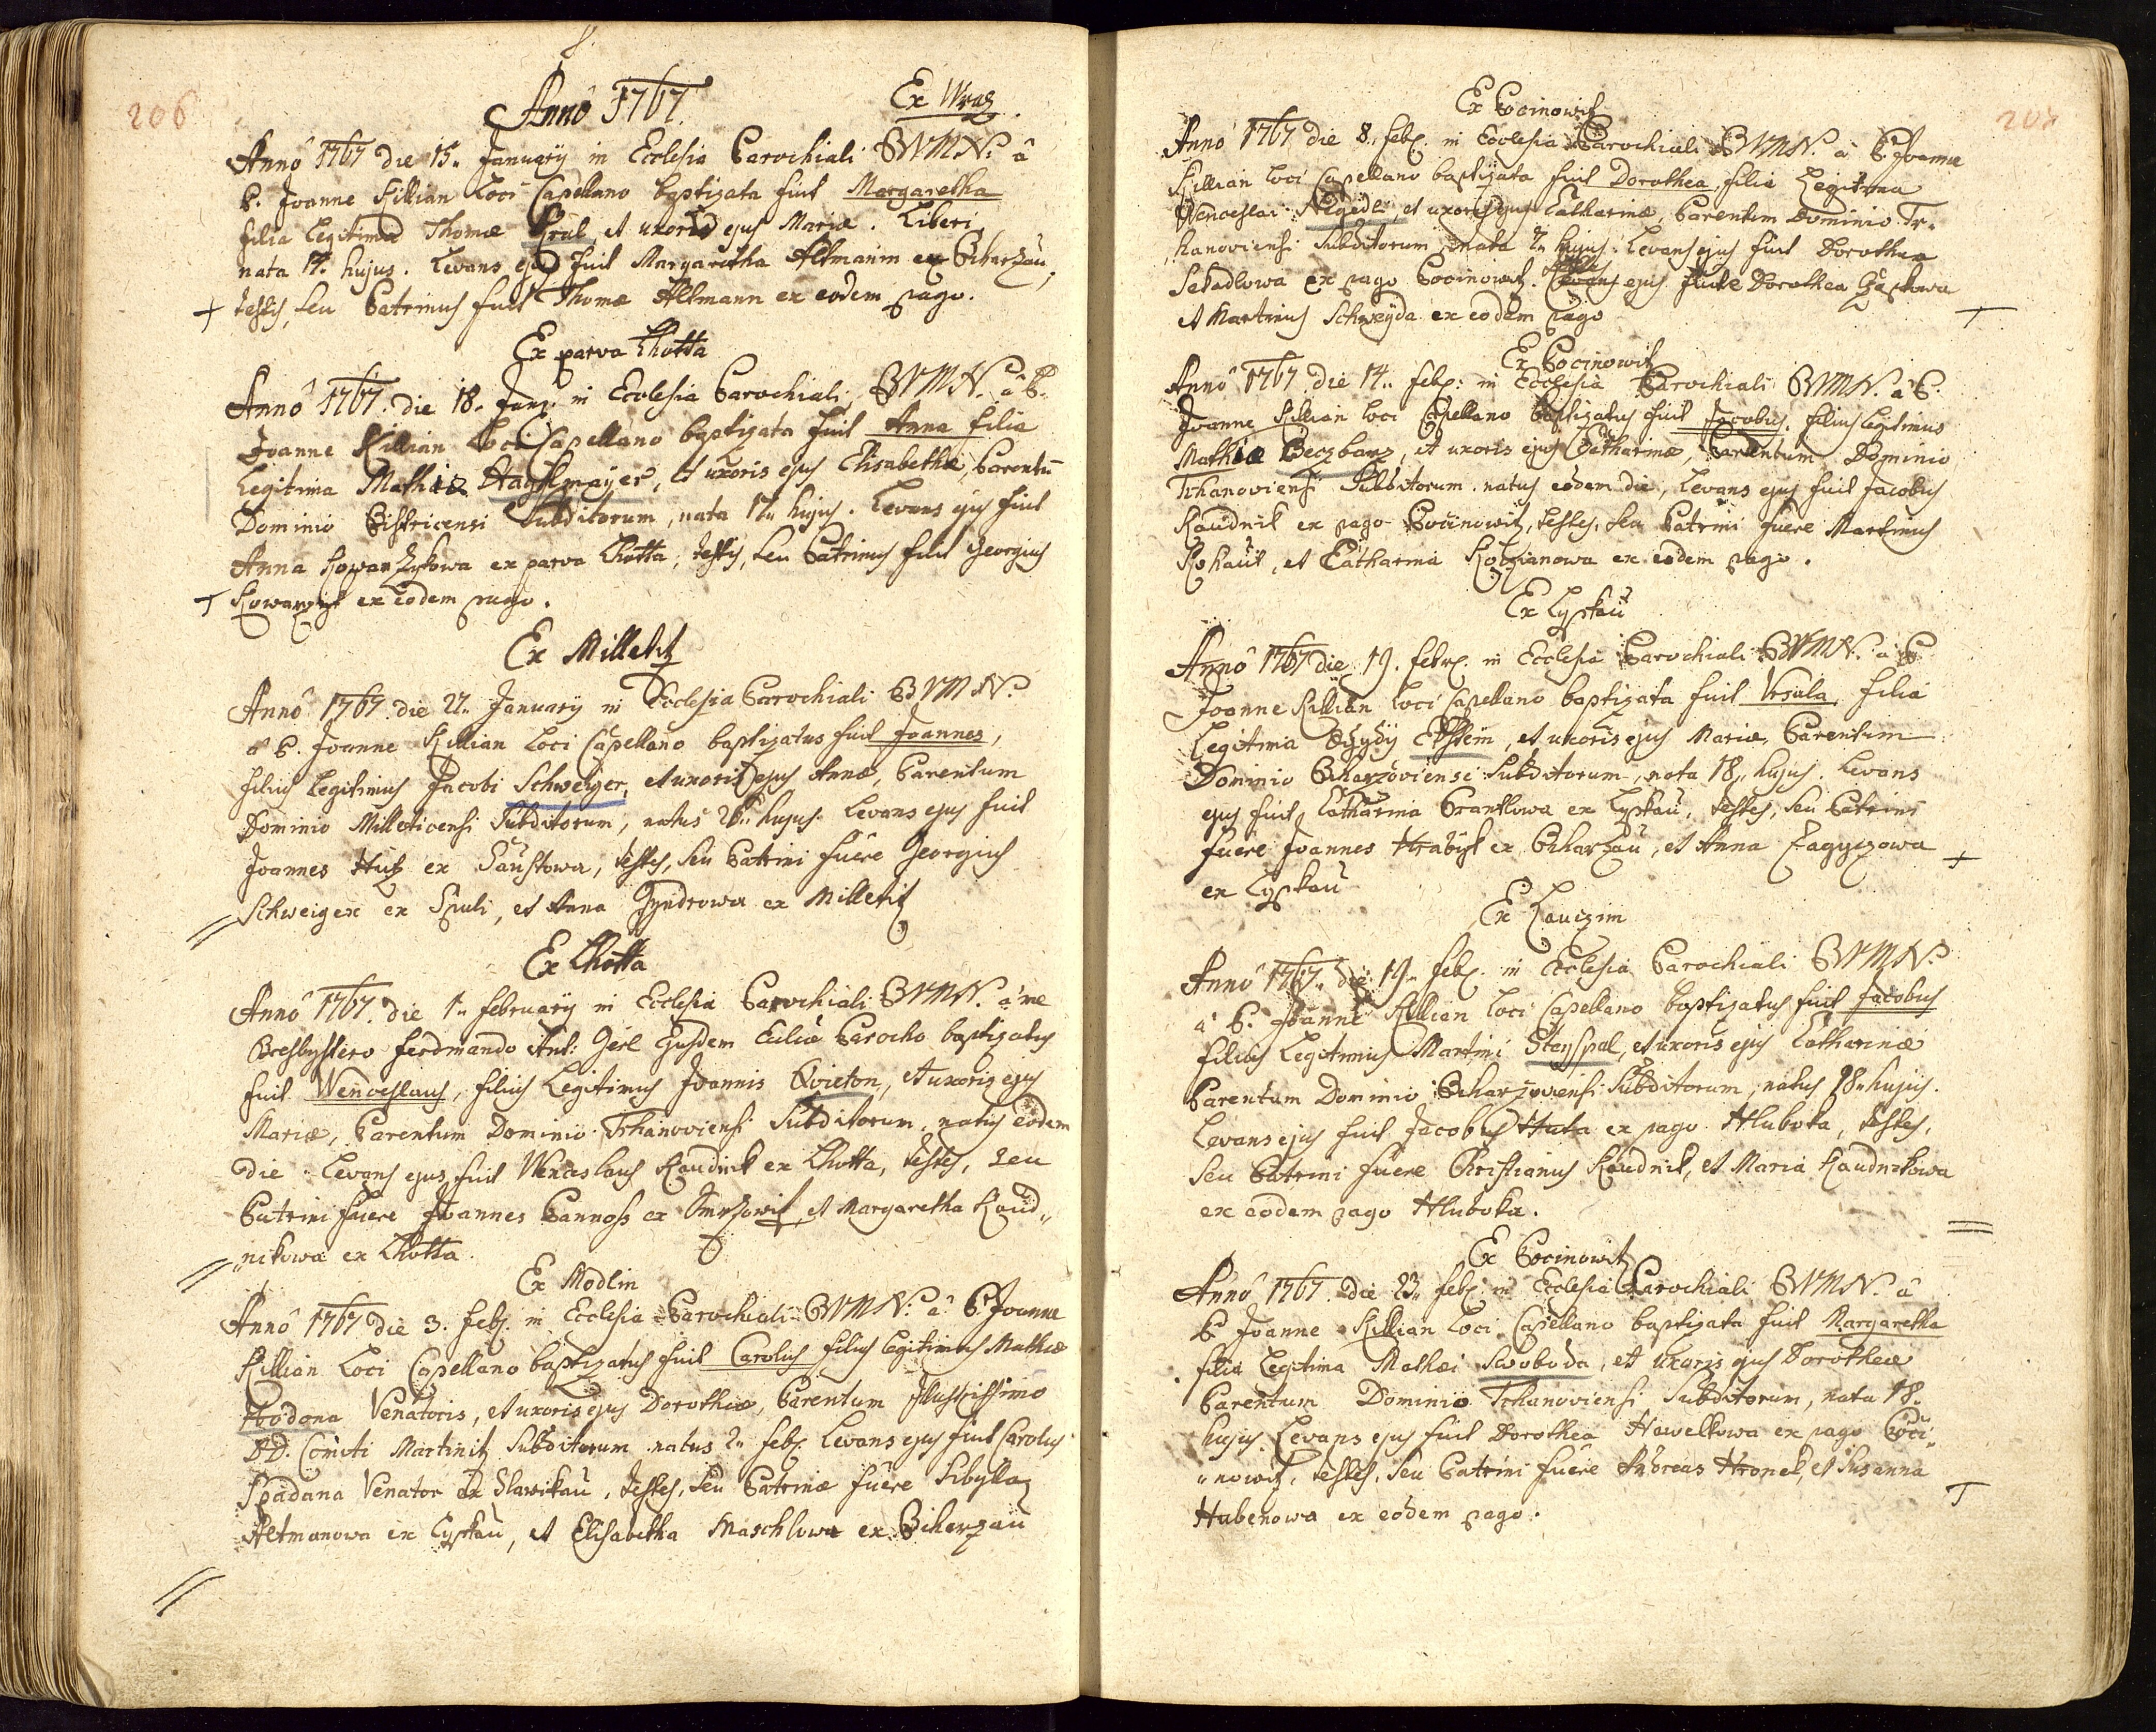 206
Anno 1767.
Ex Wraz
Anno 1767 die 15. January in Ecclesia Parochiali BVMN. a
P. Joanne Killian Loci Capellano baptizata fuit Margaretha
filia Legitima Thomæ Kral et uxoris ejus Mariæ. Liberi,
nata 14. hujus. Levans ejus fuit Margaretha Altmanin ex Biharzau,
testis, seu Patrinus fuit Thomæ Altmann ex eodem pago.
Ex parva Lhotta
Anno 1767. die 18. Jany. in Ecclesia Parochiali, BVMN. a P.
Joanne Killian Loci Capellano baptizata fuit Anna filia
Legitima Mathiæ Hayslmayer, et uxoris ejus Elisabethæ, Parentu
Dominio Bistricensi Subditorum, nata 17. hujus. Levans ejus fuit
Anna Kowarzykowa ex parva Lhotta, testis, seu Patrinus fuit Georgius
Kowarzyk ex eodem pago.
Ex Milletitz
Anno 1767 die 27. January in Ecclesia Parochiali BVMN.
a P. Joanne Killian Loci Capellano baptizatus fuit Joannes,
filius Legitimus Jacobi Schweiger, et uxoris ejus Annæ, Parentum
Dominio Milleticensi Subditorum, natus 26. hujus. Levans ejus fuit
Joannes Hutz ex Saustowa, testes, seu Patrini fuere Georgius
Schweiger ex Spuli, et Anna Jyndrowa ex Milletitz
Ex Lhotta
Anno 1767. die 1. February in Ecclesia Parochiali BVMN. a me
Presbytero Ferdinando Ant: Gerl Ejusdem Eccliæ Parocho baptizatus
fuit Wenceslaus, filius Legitimus Joannis Qvieton, et uxoris ejus
Mariæ, Parentum Dominio Tchanoviensi Subditorum, natus eodem
die. Levans ejus fuit Wenceslaus Raudnik ex Lhotta, testes, seu
Patrini fuere Joannes Pannoss ex Smrzowitz, et Margaretha Raud„
„nikowa ex Lhotta.
Ex Modlin
Anno 1767 die 3. Feb. in Ecclesia Parochiali BVMN. a P. Joanne
Killian Loci Capellano baptizatus fuit Carolus filius legitimus Mathiæ
Venatoris, et uxoris ejus Dorotheæ, Parentum Illustrissimo
DD. Comiti Martinitz Subditorum natus 2. feb. Levans ejus fuit Carolus
Spadana Venator ex Slawikau, testes, seu Patrinæ fuere Sibylla
Altmanowa ex Lyskau, et Elisabetha Maschlowa ex Biharzau
207
Ex Pocinowitz
Anno 1767 die 8. feb. in Ecclesia Parochiali BVMN. a P. Joanne
Killian loci Capellano baptizata fuit Dorothea, filia Legitima
Wenceslai Negedli, et uxoris ejus Catharinæ, Parentum Dominio Tc„
hanoviensi Subditorum, nata 7. hujus. Levans ejus fuit Dorothea
Sekadlowa ex pago Pocinowitz. testes ejus fuere Dorothea
et Martinus Schweyda ex eodem pago
Ex Pocinowitz
Anno 1767. die 14. feb: in Ecclesia Parochiali BVMN. a P.
Joanne Killian loci Capellano baptizatus fuit Jacobus, filius legitimus
Mathiæ Beczbarz, et uxoris ejus Catharinæ, Parentum Dominio
Tchanoviensi Subditorum natus eodem die, Levans ejus fuit Jacobus
Raudnik ex pago Pocinowitz, testes, seu Patrini fuere Martinus
Kohaut, et Catharina Kotzianowa ex eodem pago.
Ex Lyskau
Anno 1767 die 19. febr. in Ecclesia Parochiali BVMN. a P.
Joanne Killian loci Capellano baptizata fuit Vrsula, filia
Legitima Ægydy Ekstein, et uxoris ejus Mariæ, Parentum
Dominio Biharzoviensi Subditorum, nata 18. hujus. Levans
ejus fuit Catharina Brantlowa ex Lyskau, testes, seu Patrini
fuere Joannes Hrabyk ex Biharzau, et Anna Zagyczowa
ex Lyskau
Ex Lauczim
Anno 1767. die 19. feb. in Ecclesia Parochiali BVMN.
a P. Joanne Killian Loci Capellano baptizatus fuit Jacobus
filius Legitimus Martini Steyspal, et uxoris ejus Catharinæ
Parentum Dominio Biharzoviensi Subditorum, natus 18. hujus.
Levans ejus fuit Jacobus Huta ex pago Hluboka, testes,
seu Patrini fuere Christianus Raudnik, et Maria Raudnikowa
ex eodem pago Hluboka.
Ex Pocinowitz
Anno 1767. die 23. feb. in Ecclesia Parochiali BVMN. a
P. Joanne Killian Loci Capellano baptizata fuit Margaretha
filia Legitima Mathæi Swoboda, et uxoris ejus Dorotheæ
Parentum Dominio Tchanoviensi Subditorum, nata 18.
hujus. Levans ejus fuit Dorothea Hawelkowa ex pago Poci„
„nowitz, testes, seu Patrini fuere Andreas Hronek, et Susanna
Hubenowa ex eodem pago.